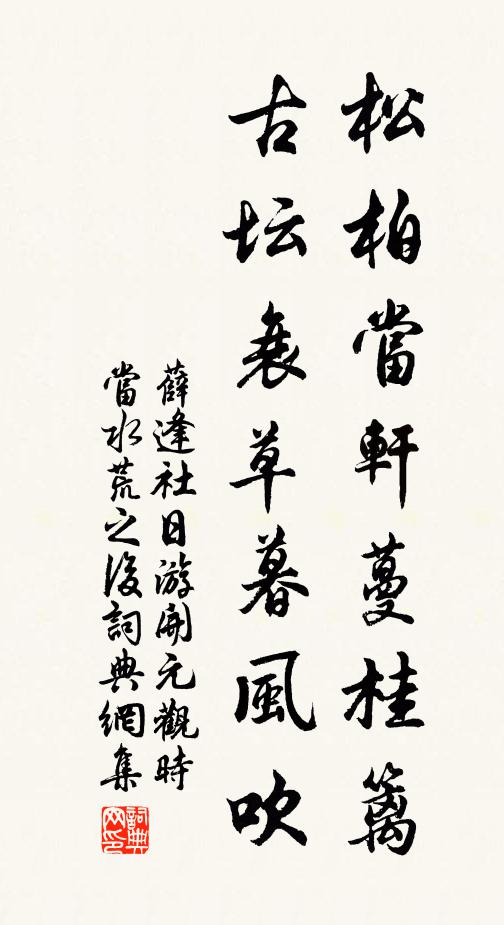 松柏當軒蔓桂篱
古坛衰草暮風吹
薛逢社日游開元觀時
當水荒之後詞典網集
詞典网印